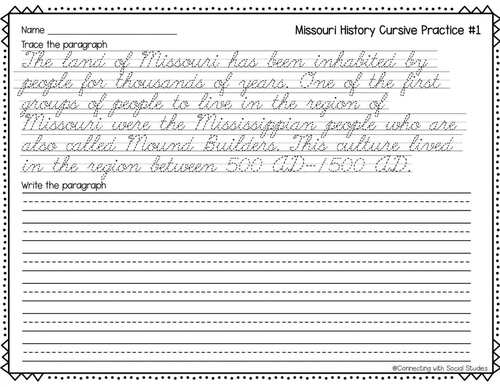 Name
Missouri History Cursive Practice #1
Trace the paragraph
The land of Missouri has been inhabited by
people for thousands of years. One of the first
groups of people to live in the region of
Missouri were the Mississippian people who are
also called Mound Builders. This culture lived
in the region between 500 AD-1500 AD.
Write the paragraph
©Connecting with Social Studies